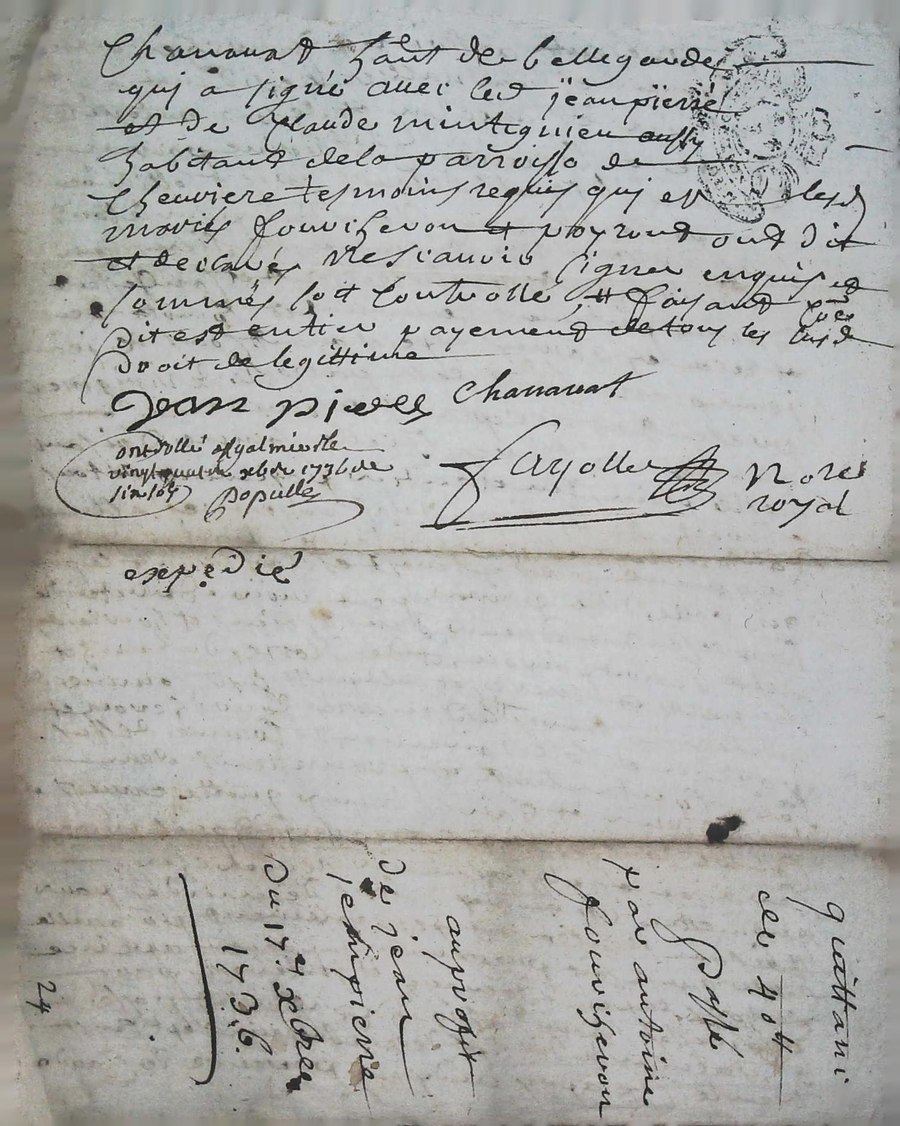 Chanauat hant de bellegarde
qui a signé auec led jëanpïerre
et de Claude mintignieu aussy
habitant de la parroisse de
Cheuriere tesmoins requis qui et lesd
mariés fouuihevou et peyront ont dit
et declarés Nescauoir signer enquis et
sommés soit Controllé
dit est entier payement de tous les susd
Droit de legittime
Jean pierre Chanauat
Controllé a St galmier le
vingt quatre xbre 1736 Re
six sols
populle
fayolle Nore
royal
expedié
quittance
de 40 ₶
passé
par antoine
fouuihevou
au profit
de jean
jeanpierre
Du 17e xbre
1736.
24